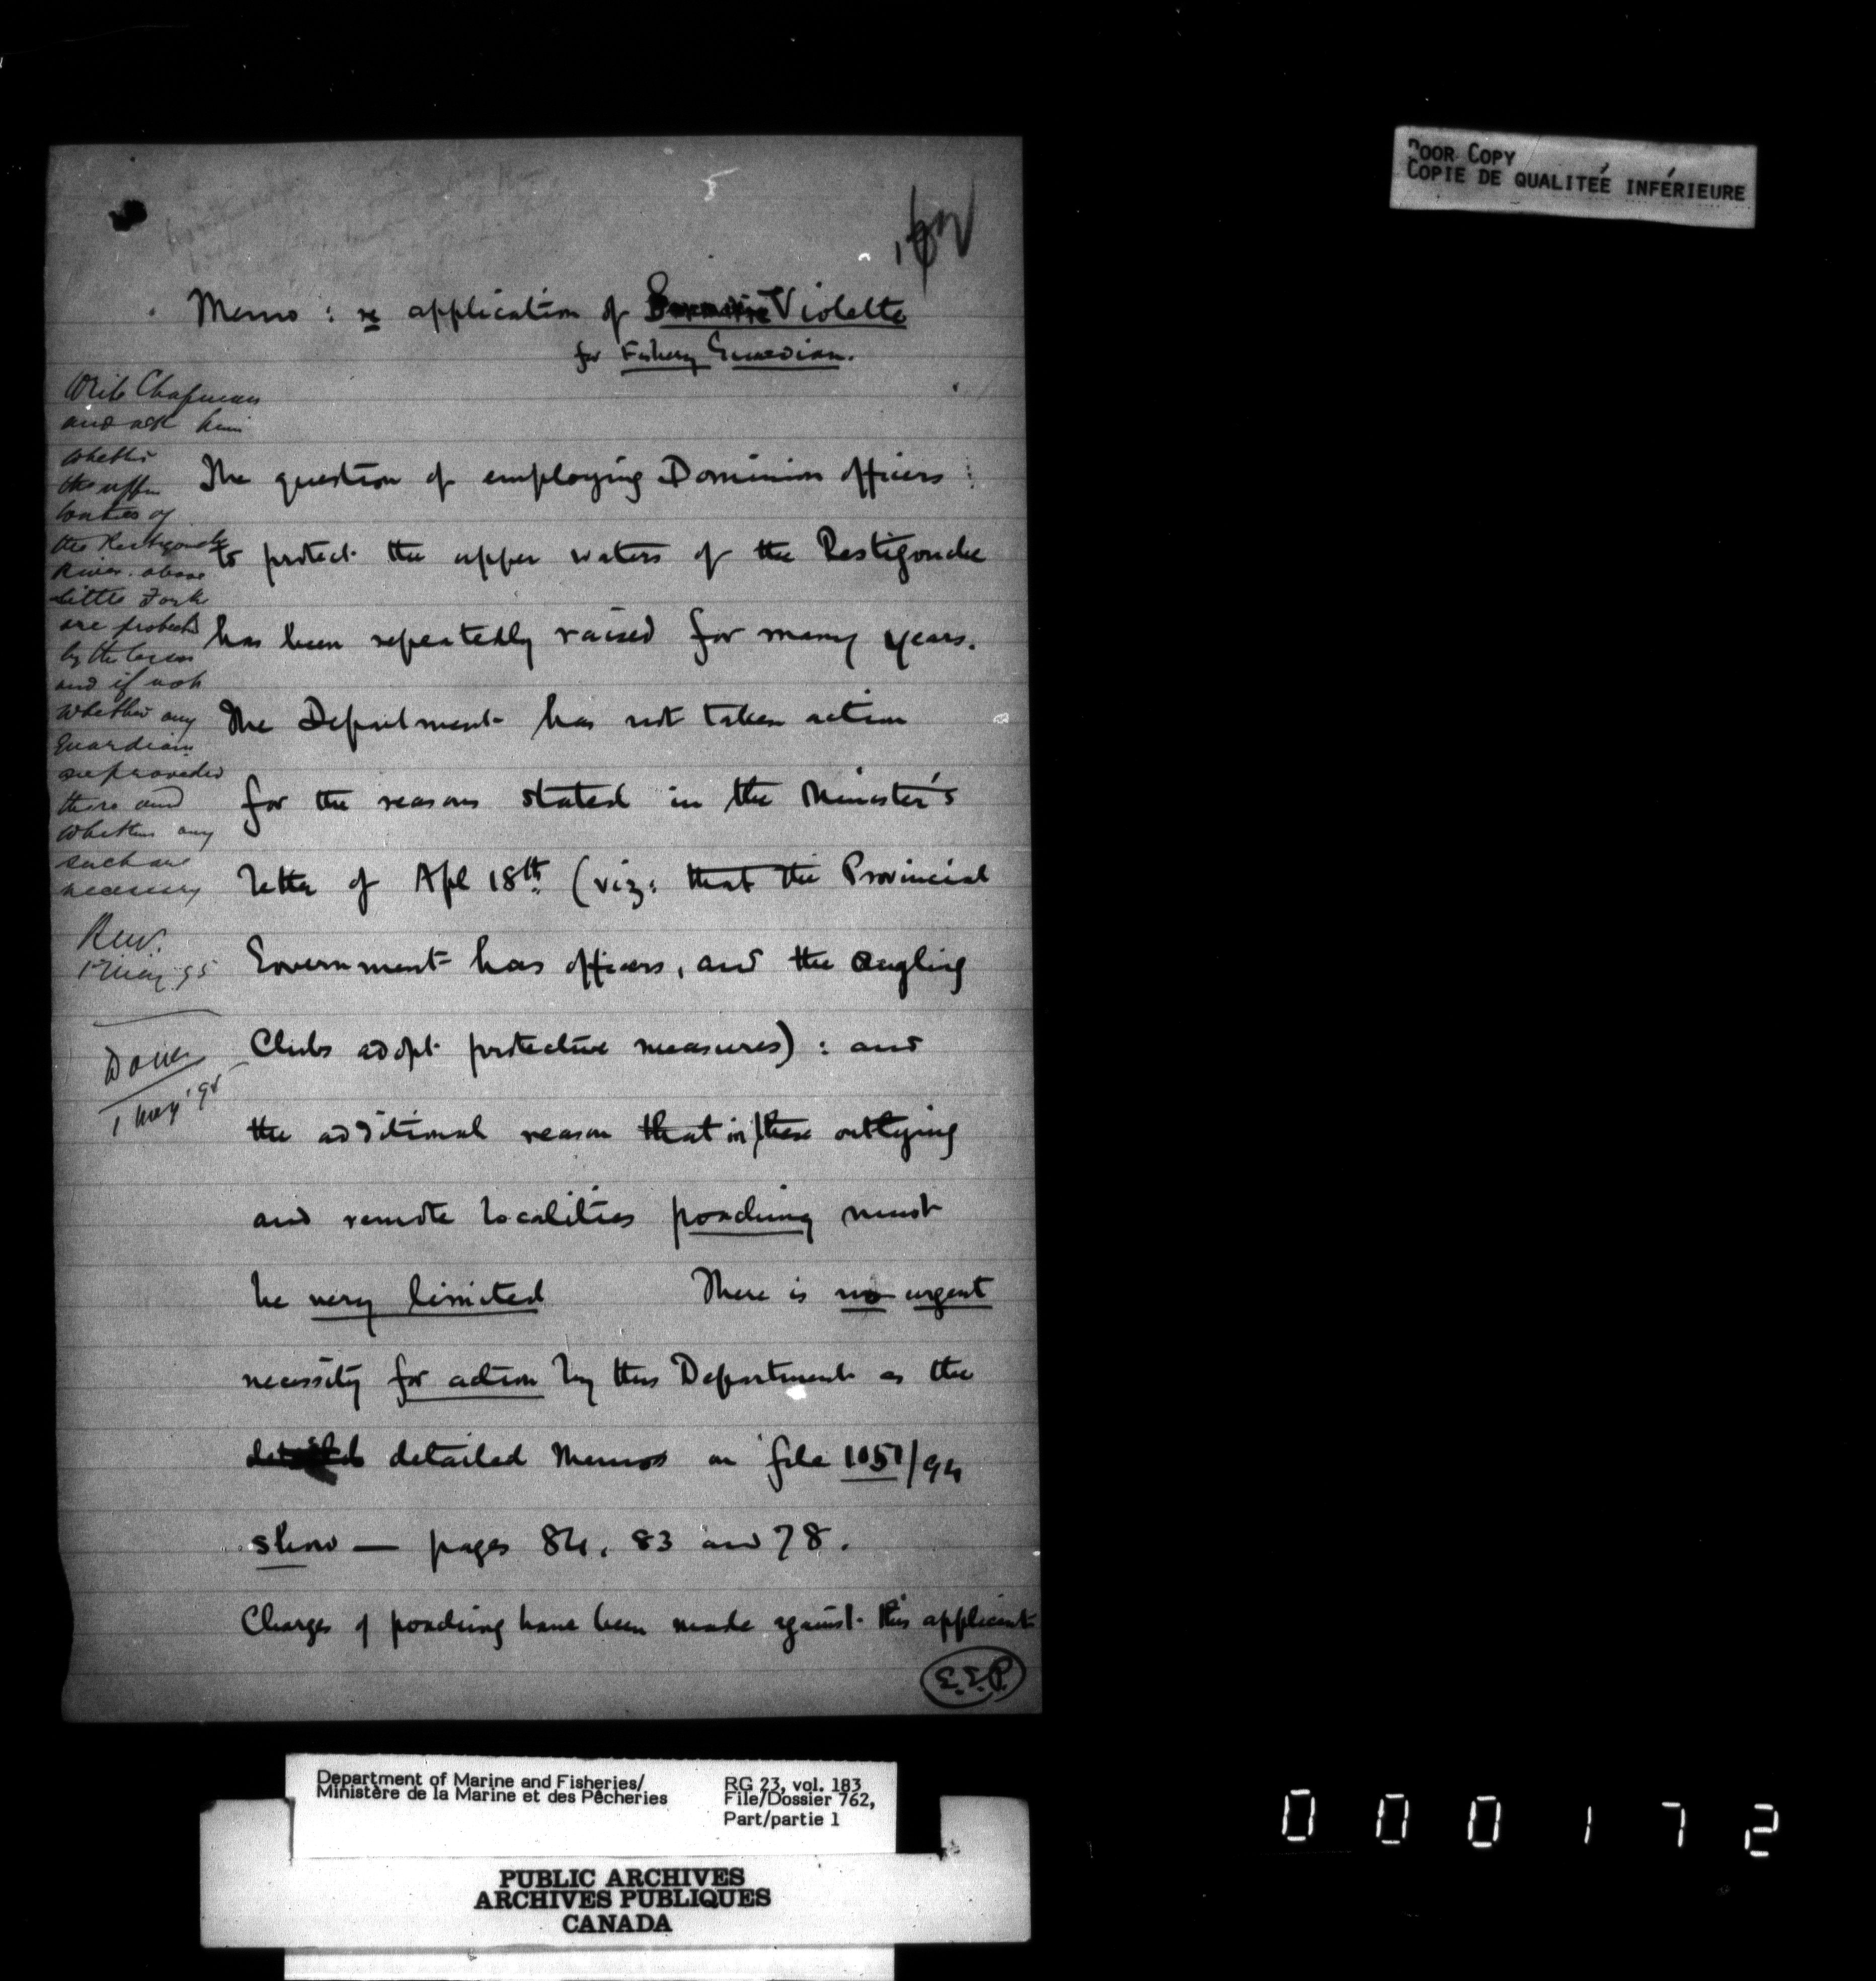 POOR COPY
COPIE DE QUALITEÉ INFÉRIEURE
5
Memo : re application of Violette
for Fishery Guardian.
The question of employing Dominion officers
to protect the upper waters of the Restigouche
has been repeatedly raised for many years.
The Department has not taken action
for the reasons stated in the Minister's
letter of Apl 18th (viz: that the Provincial
Government has officers, and the angling
Clubs adopt protective measures) : and
the additional reason that in these outlying
and remote localities poaching must
be very limited There is no urgent
necessity for action by this Department as the
detailed Memos on file 1051/94
show — pages 84, 83 and 78.
Charges of poaching have been made against this applicant
E.E.P.
Write Chapman
and ask him
whether
the upper
waters of
the Restigouche
River above
Little Fork
are protected
by the
and if not
whether any
Guardians
are provided
there and
whether any
such are
necessary
1 May 95
Done
1 May '95
Department of Marine and Fisheries/
Ministère de la Marine et des Pêcheries
RG 23, vol. 183
File/Dossier 762,
Part/partie 1
PUBLIC ARCHIVES
ARCHIVES PUBLIQUES
CANADA
000172